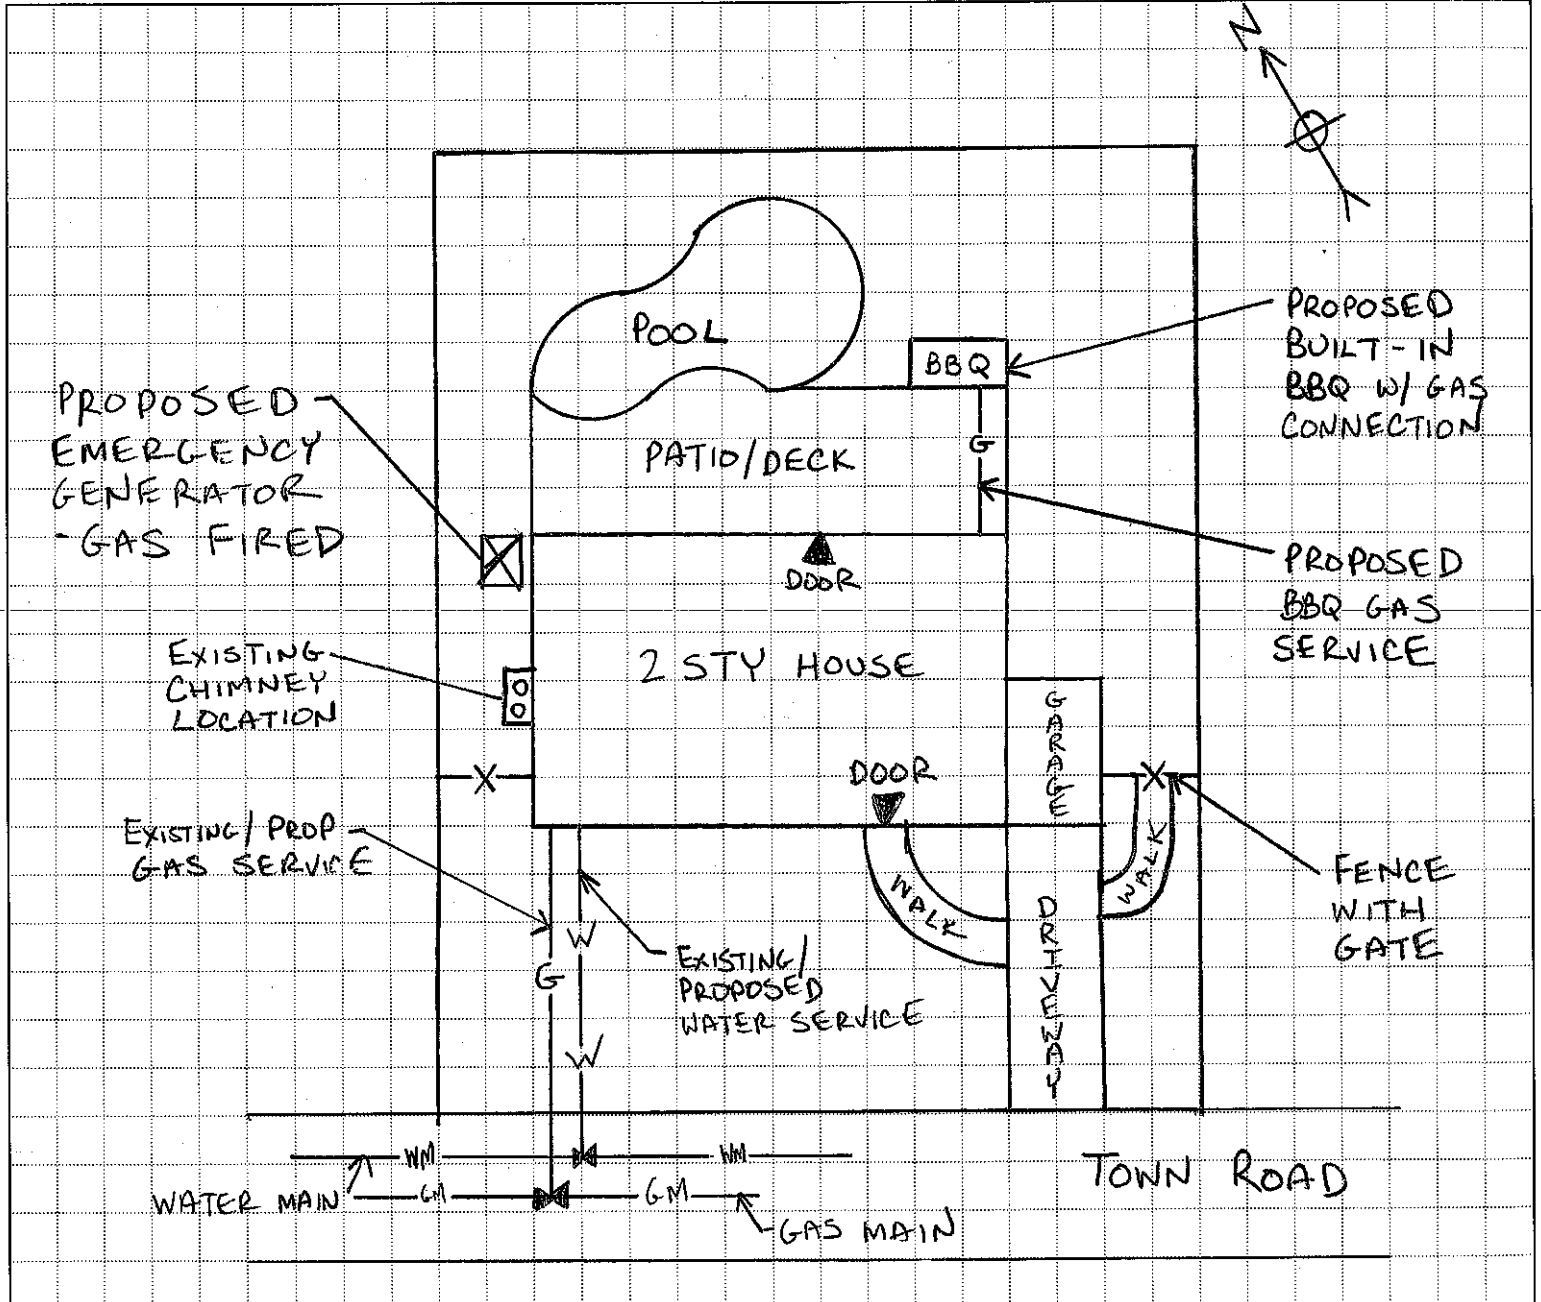 N
POOL
BBQ
PROPOSED
BUILT-IN
BBQ W/ GAS
CONNECTION
PROPOSED
EMERGENCY
GENERATOR
-GAS FIRED
G
PATIO/DECK
DOOR
PROPOSED
BBQ GAS
SERVICE
EXISTING
CHIMNEY
LOCATION
2 STY HOUSE
GARAGE
X
DOOR
X
EXISTING/PROP
GAS SERVICE
WALK
WALK
FENCE
WITH
GATE
DRIVEWAY
W
G
EXISTING/
PROPOSED
WATER SERVICE
W
WM
WM
TOWN ROAD
WATER MAIN
GM
GM
GAS MAIN